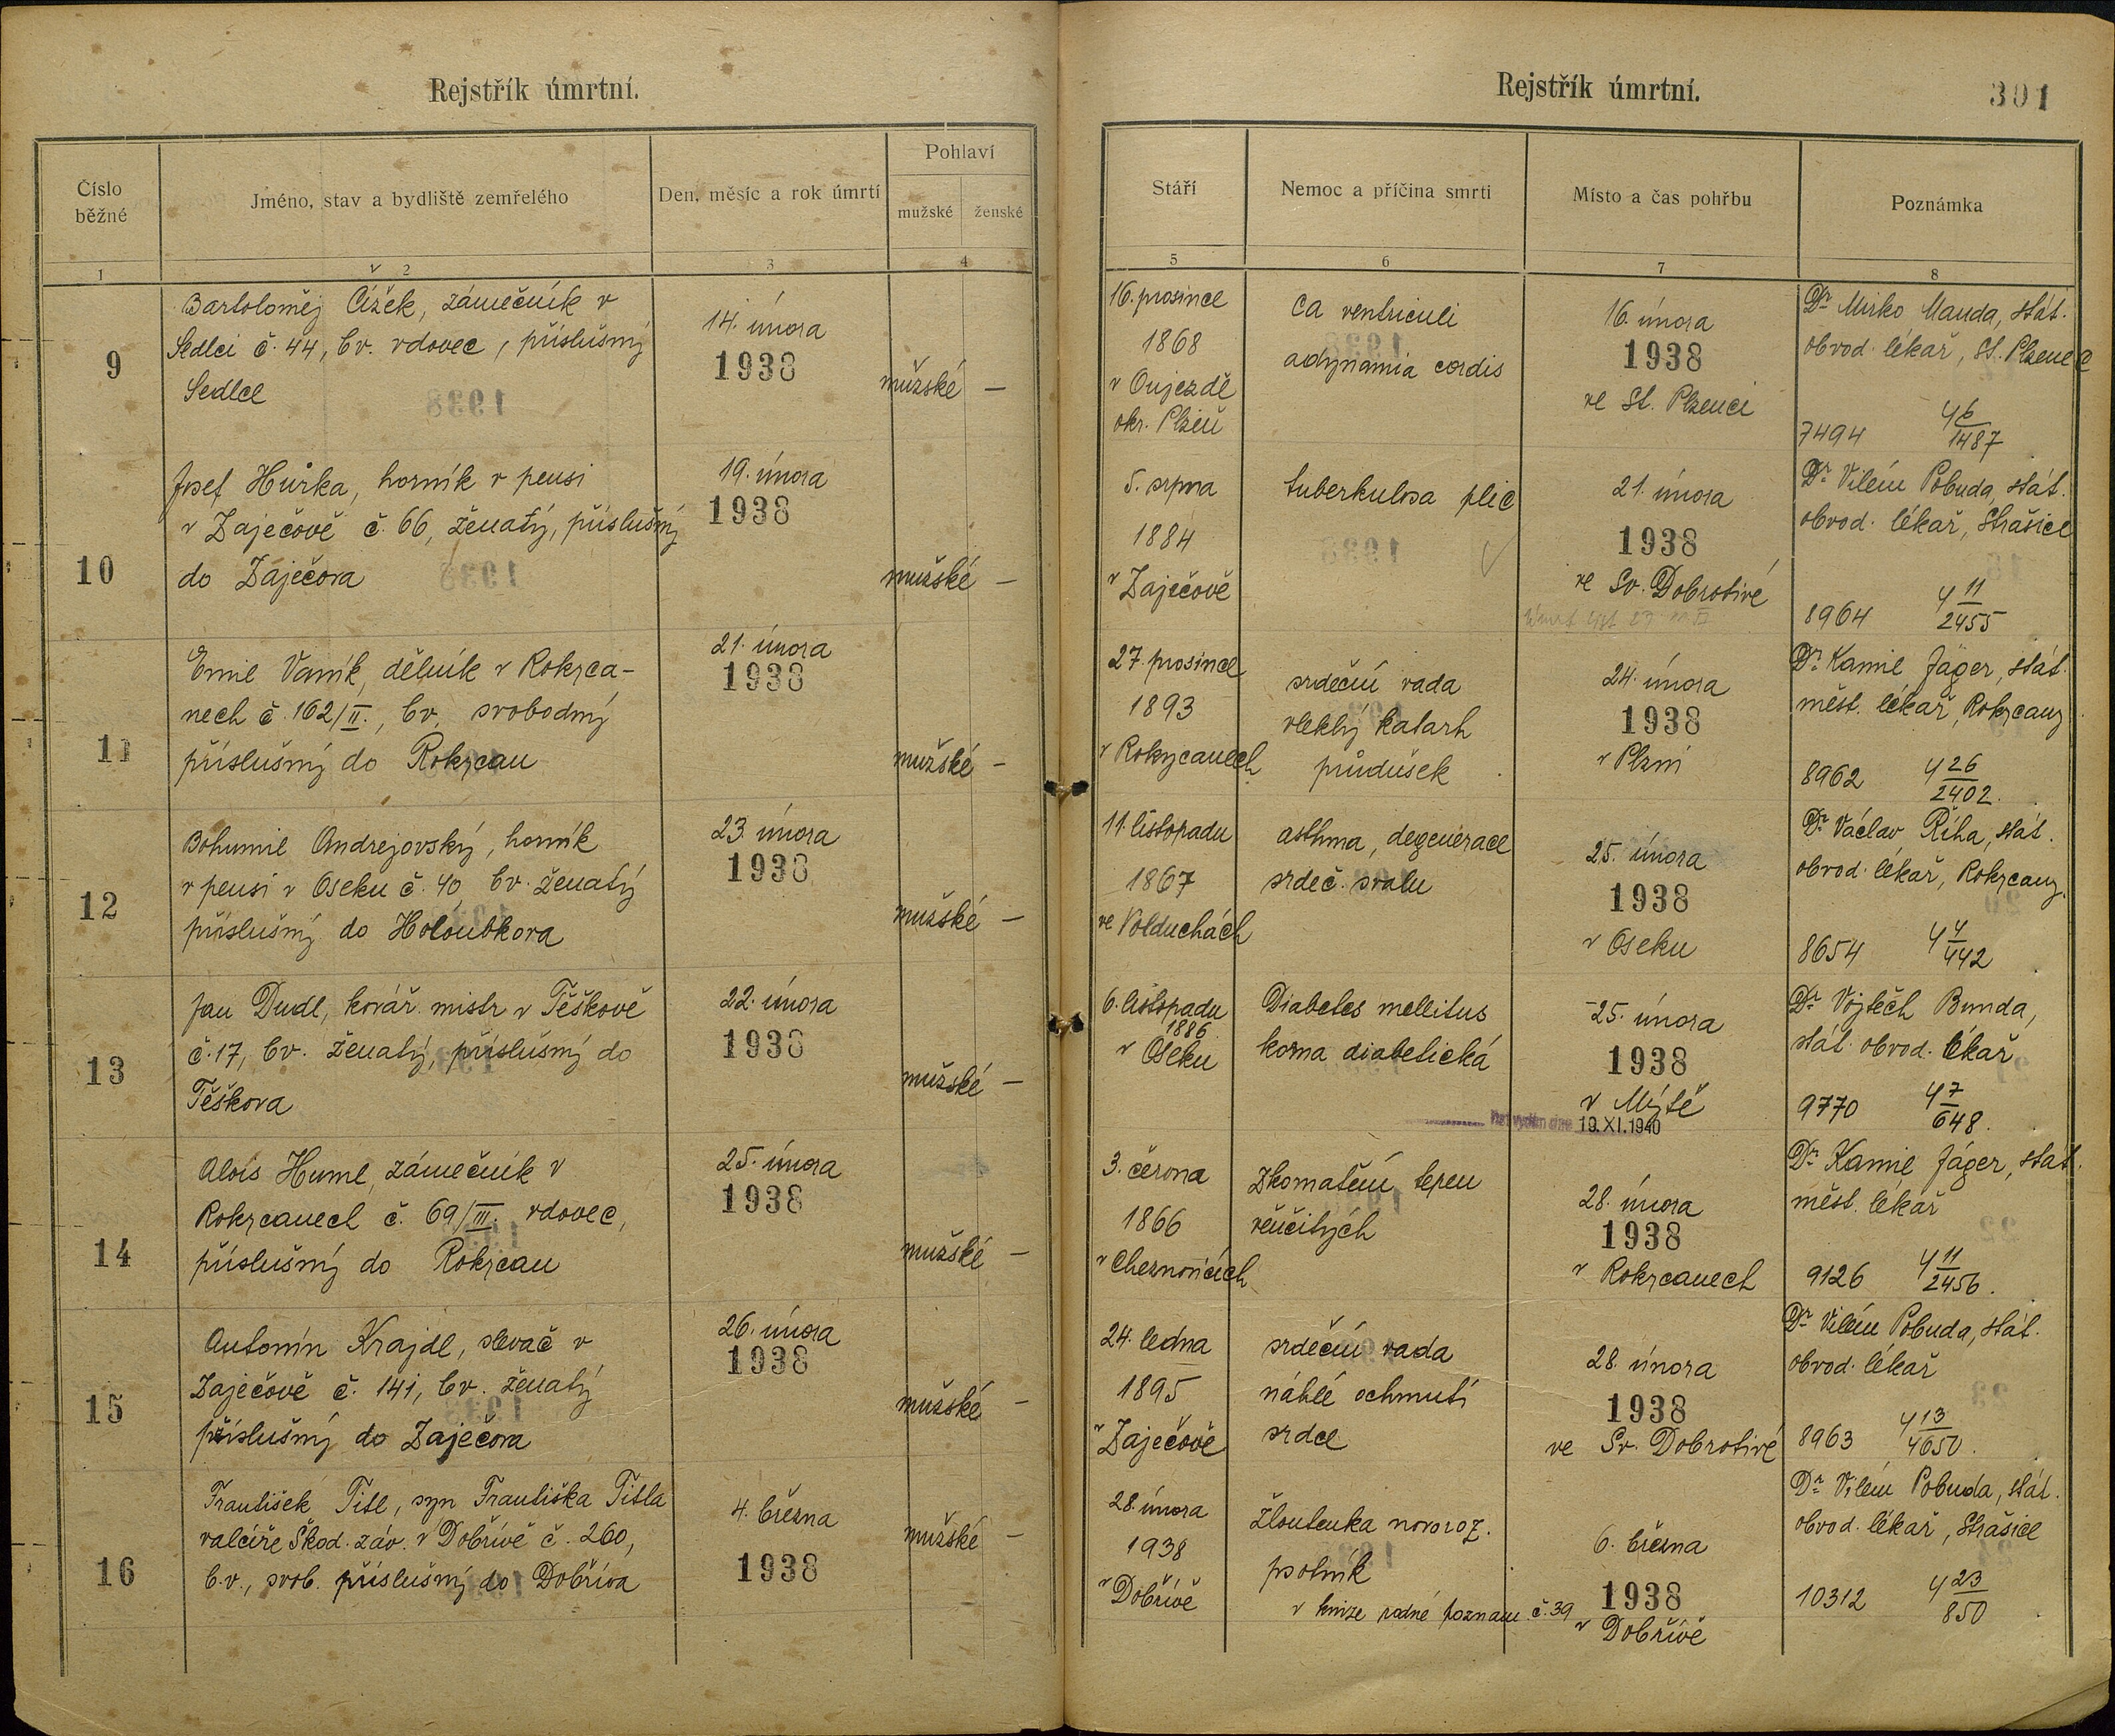 Rejstřík úmrtní.
Číslo běžné
Jméno, stav a bydliště zemřelého
Den, měsíc a rok úmrtí
Pohlaví
mužské
ženské
1
2
3
4
9
Bartoloměj Čížek, zámečník v
Sedlci č. 44, bv. vdovec, příslušný
Sedlec
14. února
1938
mužské —
10
Josef Hůrka, horník v pensi
v Zaječově č. 66, ženatý, příslušný
do Zaječova
19. února
1938
mužské —
11
Emil Vaník, dělník v Rokyca-
nech č. 162/II., bv. svobodný
příslušný do Rokycan
21. února
1938
mužské -
12
Bohumil Andrejovský, horník
v pensi v Oseku č. 40 bv. ženatý
příslušný do Holoubkova
23. února
1938
mužské —
13
Jan Dudl, kovář. mistr v Těškově
č. 17, bv. ženatý, příslušný do
Těškova
22. února
1938
mužské —
14
Alois Huml, zámečník v
Rokycanech č. 69/III. vdovec,
příslušný do Rokycan
25. února
1938
mužské —
15
Antonín Krajdl, slevač v
Zaječově č. 141, bv. ženatý
příslušný do Zaječova
26. února
1938
mužské -
16
František Titl, syn Františka Titla
valcíře Škod. záv. v Dobřívě č. 260,
b.v., svob. příslušný do Dobříva
4. března
1938
mužské -
Rejstřík úmrtní.
301
Stáří
Nemoc a příčina smrti
Místo a čas pohřbu
Poznámka
5
6
7
8
16. prosince
1868
v Oujezdě
okr. Plzeň
ca ventriculi
adynamia cordis
16. února
1938
ve St. Plzenci
Dr Mirko Mauda, stát.
obvod. lékař, St. Plzenec
7494 4 6/1487
5. srpna
1884
v Zaječově
tuberkulosa plic
21. února
1938
ve Sv. Dobrotivé
Dr Vilém Pobuda, stát.
obvod. lékař, Strašice
8964 4 11/2455
27. prosince
1893
v Rokycanech
srdeční vada
vleklý katarh
průdušek
24. února
1938
v Plzni
Dr Kamil Jäger, stát.
měst. lékař, Rokycany
8962 4 26/2402.
11. listopadu
1867
ve Volduchách
asthma, degenerace
srdeč. svalu
25. února
1938
v Oseku
Dr Václav Říha, stát.
obvod. lékař, Rokycany.
8654 4 4/442
6. listopadu
1886
v Oseku
Diabetes mellitus
koma diabetická
25. února
1938
v Mýtě
19. XI. 1940
Dr Vojtěch Bunda,
stát. obvod. lékař
9770 4 7/648.
3. června
1866
v Cheznovicích
Zkornatění tepen
věnčitých
28. února
1938
v Rokycanech
Dr Kamil Jäger, stát.
měst. lékař
9126 4 11/2456.
24. ledna
1895
v Zaječově
srdeční vada
náhlé ochrnutí
srdce
28. února
1938
ve Sv. Dobrotivé
Dr Vilém Pobuda, stát.
obvod. lékař
8963 4 13/4650.
28. února
1938
v Dobřívě
Žloutenka novoroz.
psotník
v knize rodné poznam. č. 39
6. března
1938
v Dobřívě
Dr Vilém Pobuda, stát.
obvod. lékař, Strašice
10312 4 23/850